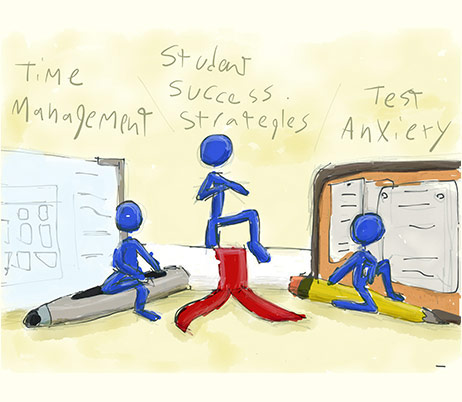 Time
Management
Student
Success
Strategies
Test
Anxiety